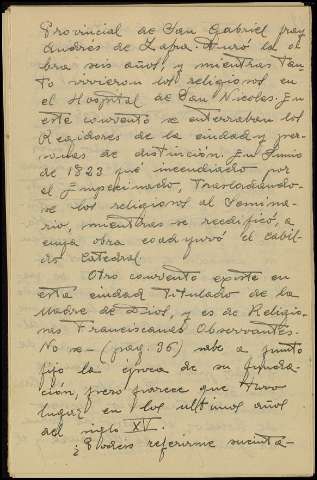 Provincial de San Gabriel fray
Andrés de Zafra. Duró la o-
bra seis años, y mientras tan-
to vivieron los religiosos en
el Hospital de San Nicolas. En
este convento se enterraban los
Regidores de la ciudad y per-
sonas de distinción. En Junio
de 1823 fué incendiado por
el Empecinado, trasladando-
se los religiosos al Semina-
rio, mientras se reedificó, a
cuya obra coadyuvó el Cabil-
do Catedral.
Otro convento existe en
esta ciudad titulado de la
Madre de Dios, y es de Religio-
sas Franciscanas Observantes.
No se (pag. 36) sabe a punto
fijo la época de su funda-
ción, pero parece que tuvo
lugar en los ultimos años
del siglo XV.
¿Podeis referirme sucinta-